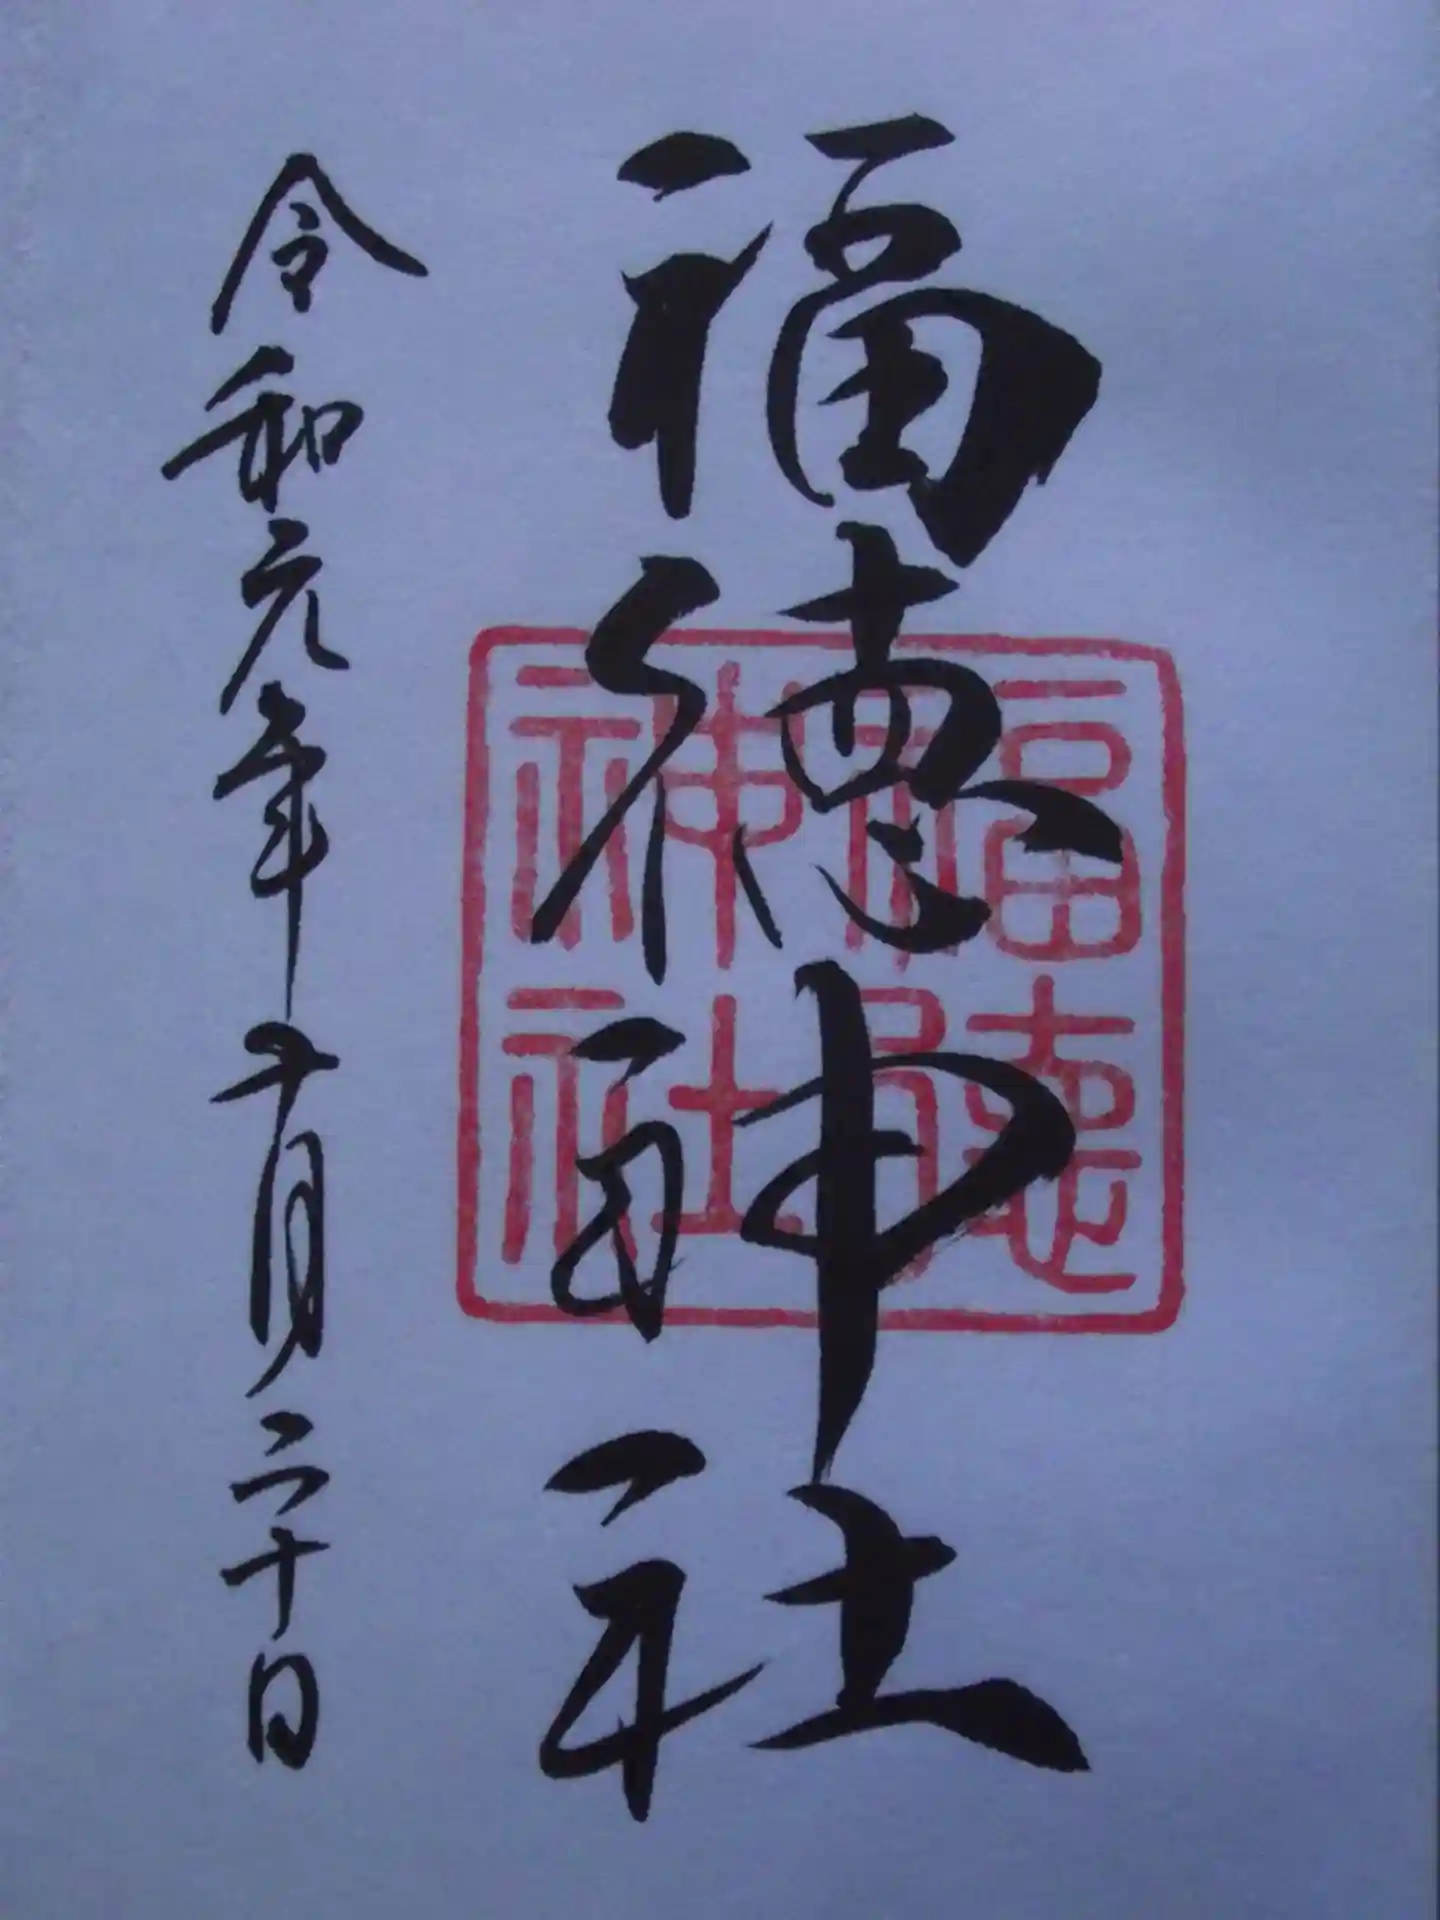 福徳神社
福徳
神社
令和元年十月二十日